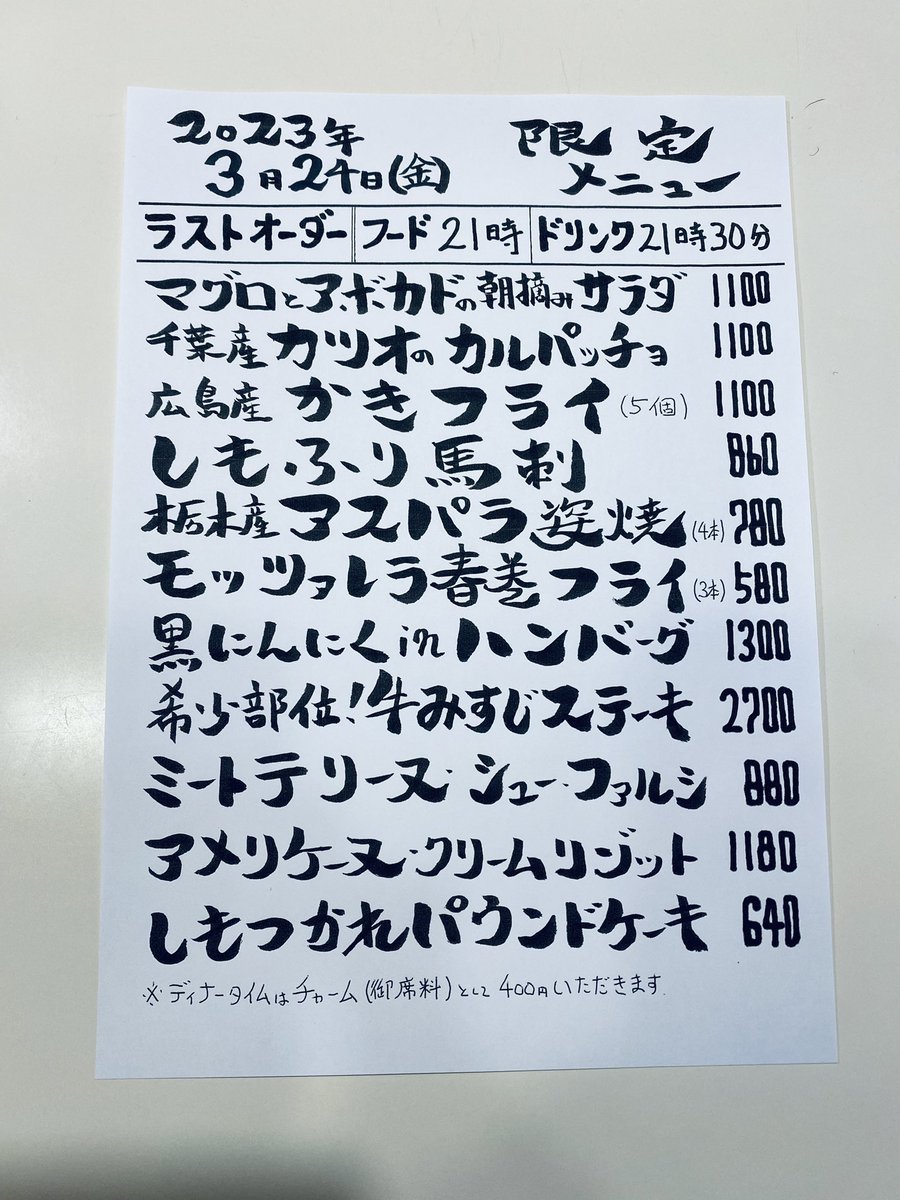 2023年
3月24日(金)
限定
メニュー
ラストオーダー フード21時 ドリンク21時30分
マグロとアボカドの朝摘みサラダ 1100
千葉産カツオのカルパッチョ 1100
広島産かきフライ(5個) 1100
しもふり馬刺 860
栃木産アスパラ姿焼(4本) 780
モッツァレラ春巻フライ(3本) 580
黒にんにくinハンバーグ 1300
希少部位!牛みすじステーキ 2700
ミートテリーヌ・シュー・ファルシ 880
アメリケーヌ・クリームリゾット 1180
しもつかれパウンドケーキ 640
※ディナータイムはチャーム(御席料)として400円いただきます.